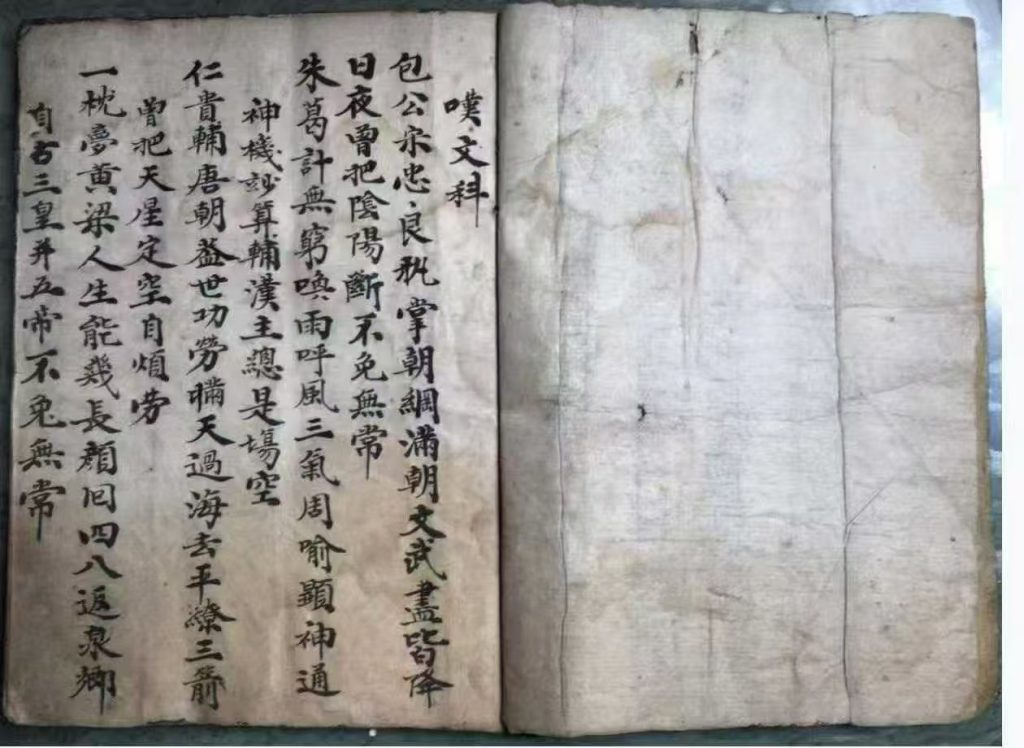 嘆文科
包公宋忠良執掌朝綱滿朝文武盡皆降
日夜曾把陰陽斷不免無常
朱葛計無窮喚雨呼風三氣周喻顯神通
神機妙算輔漢主總是塲空
仁貴輔唐朝蓋世功勞瞞天過海去平繚三箭
曾把天星定空自煩勞
一枕夢黃梁人生能幾長顏回四八返泉鄉
自古三皇并五帝不免無常